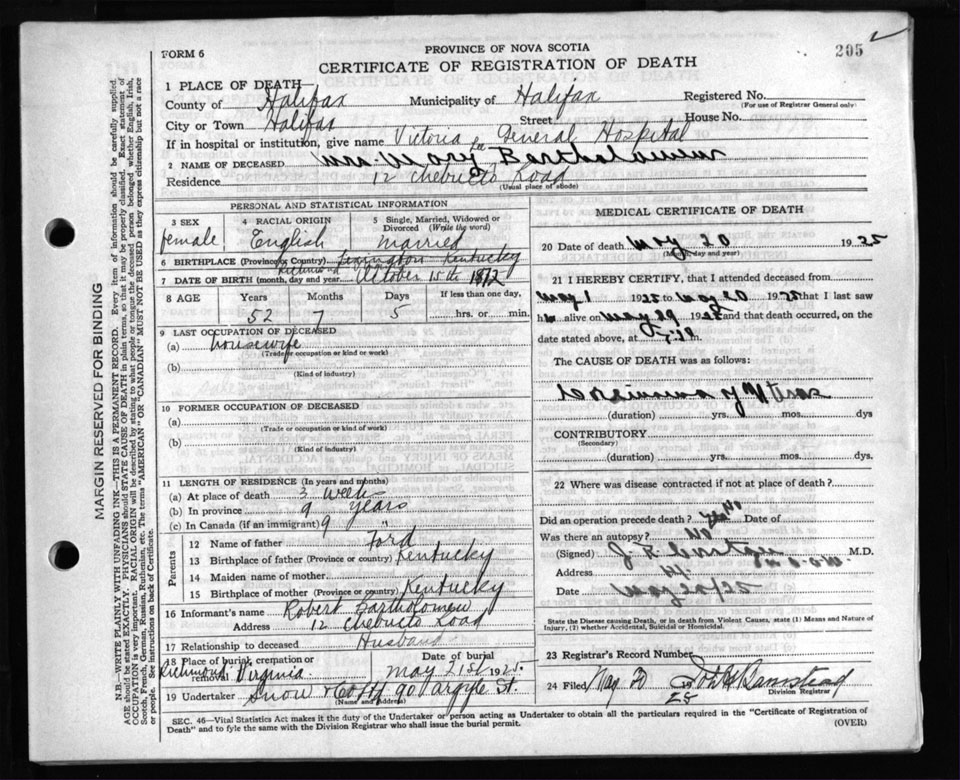 FORM 6
PROVINCE OF NOVA SCOTIA
205
CERTIFICATE OF REGISTRATION OF DEATH
1 PLACE OF DEATH
County of Halifax Municipality of Halifax Registered No.
(For use of Registrar General only)
City or Town Halifax Street House No.
If in hospital or institution, give name Victoria General Hospital
2 NAME OF DECEASED Mrs. Mary Bartholomew
Residence 12 Chebucto Road
(Usual place of abode)
PERSONAL AND STATISTICAL INFORMATION
3 SEX 4 RACIAL ORIGIN 5 Single, Married, Widowed or Divorced (Write the word)
female English married
6 BIRTHPLACE (Province or Country) Lexington Kentucky
Richmond
7 DATE OF BIRTH (month, day and year) October 15th 1872
8 AGE Years Months Days If less than one day,
52 7 5 hrs. or min.
9 LAST OCCUPATION OF DECEASED
(a) housewife
(Trade or occupation or kind or work)
(b)
(Kind of industry)
10 FORMER OCCUPATION OF DECEASED
(a)
(Trade or occupation or kind of work)
(b)
(Kind of industry)
11 LENGTH OF RESIDENCE (In years and months)
(a) At place of death 3 weeks
(b) In province 9 years
(c) In Canada (if an immigrant) 9 "
Parents
12 Name of father Ford
13 Birthplace of father (Province or country) Kentucky
14 Maiden name of mother
15 Birthplace of mother (Province or country) Kentucky
16 Informant's name Robert Bartholomew
Address 12 Chebucto Road
17 Relationship to deceased Husband
18 Place of burial, cremation or removal Date of burial
Richmond Virginia May 21st 1925
19 Undertaker Snow & Co 90 Argyle St.
(Name and address)
MEDICAL CERTIFICATE OF DEATH
20 Date of death May 20 1925
(Month, day and year)
21 I HEREBY CERTIFY, that I attended deceased from
May 1 1925 to May 20 1925 that I last saw
h alive on May 1925 and that death occurred, on
date stated above, at m.
The CAUSE OF DEATH was as follows:
Carcinoma of Uterus
(duration) yrs. mos. dys
CONTRIBUTORY
(Secondary)
(duration) yrs. mos. dys.
22 Where was disease contracted if not at place of death?
Did an operation precede death? No Date of
Was there an autopsy? No
(Signed) M.D.
Address
Date May 20/25
State the Disease causing Death, or in death from Violent Causes, state (1) Means and Nature of Injury, (2) whether Accidental, Suicidal or Homicidal.
23 Registrar's Record Number
24 Filed May 20 25
Division Registrar
SEC. 46—Vital Statistics Act makes it the duty of the Undertaker or person acting as Undertaker to obtain all the particulars required in the "Certificate of Registration of
Death" and to fyle the same with the Division Registrar who shall issue the burial permit.
(OVER)
MARGIN RESERVED FOR BINDING
N.B.—WRITE PLAINLY WITH UNFADING INK—THIS IS A PERMANENT RECORD. Every item of information should be carefully supplied.
AGE should be stated EXACTLY. PHYSICIANS should STATE CAUSE OF DEATH in plain terms, so that it may be properly classified. Exact statement of
OCCUPATION is very important. RACIAL ORIGIN will be described by stating to what people or tongue the deceased person belonged whether English, Irish,
Scotch, French, German, Russian, Ruthenian, etc. The terms "AMERICAN" OR "CANADIAN" MUST NOT BE USED as they express citizenship but not a race
or people. See instructions on back of Certificate.